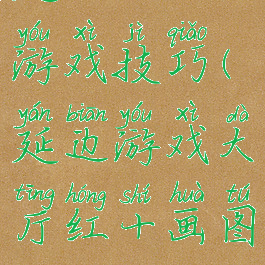 yóu xì jì qiǎo
游戏技巧(
yán bian yóu xì dà
延边游戏大
tīng hóng shí huà tú
厅红十画图